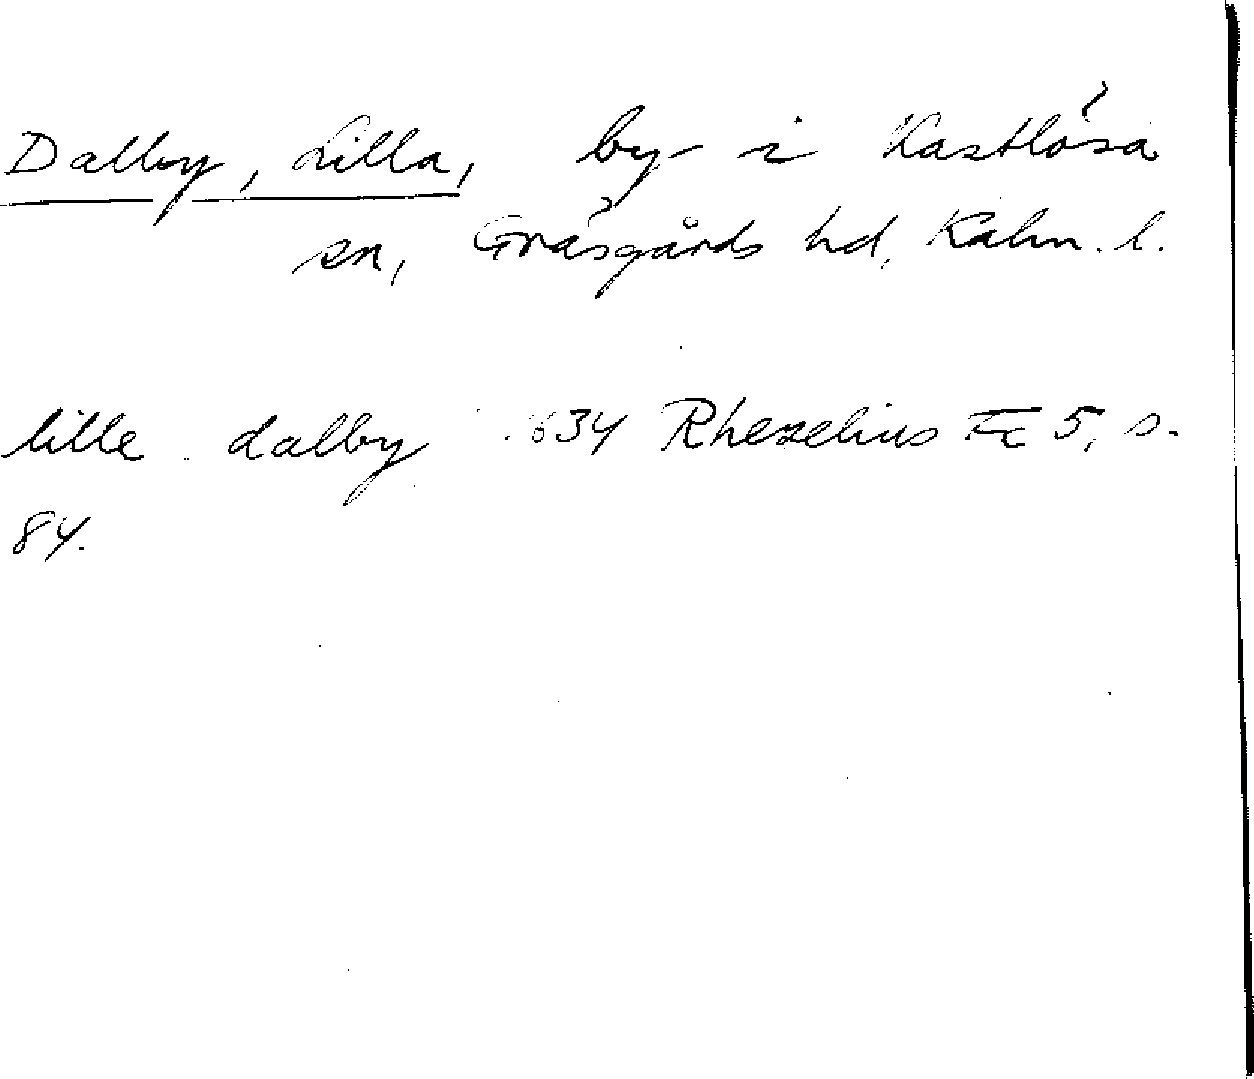 Dalby, Lilla, by i Kastlösa
sn, Gräsgårds hd, Kalm. l.
lille dalby 1634 Rhezelius Fc 5, s.
84.